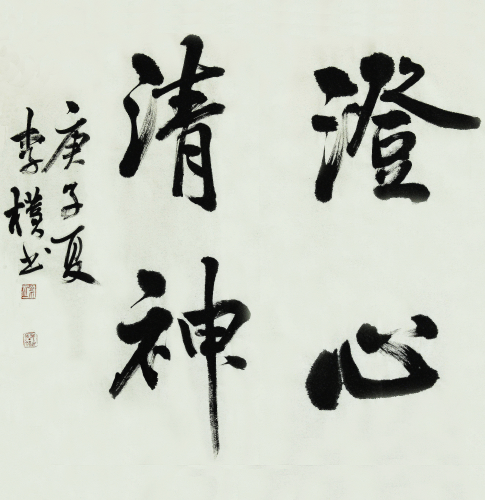 澄心
清神
庚子夏
李樸书